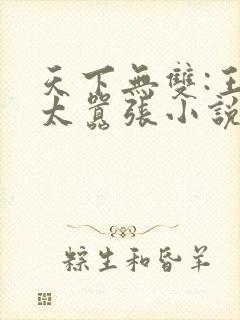 天下無雙:王
太囂張小說
粽生和昏羊